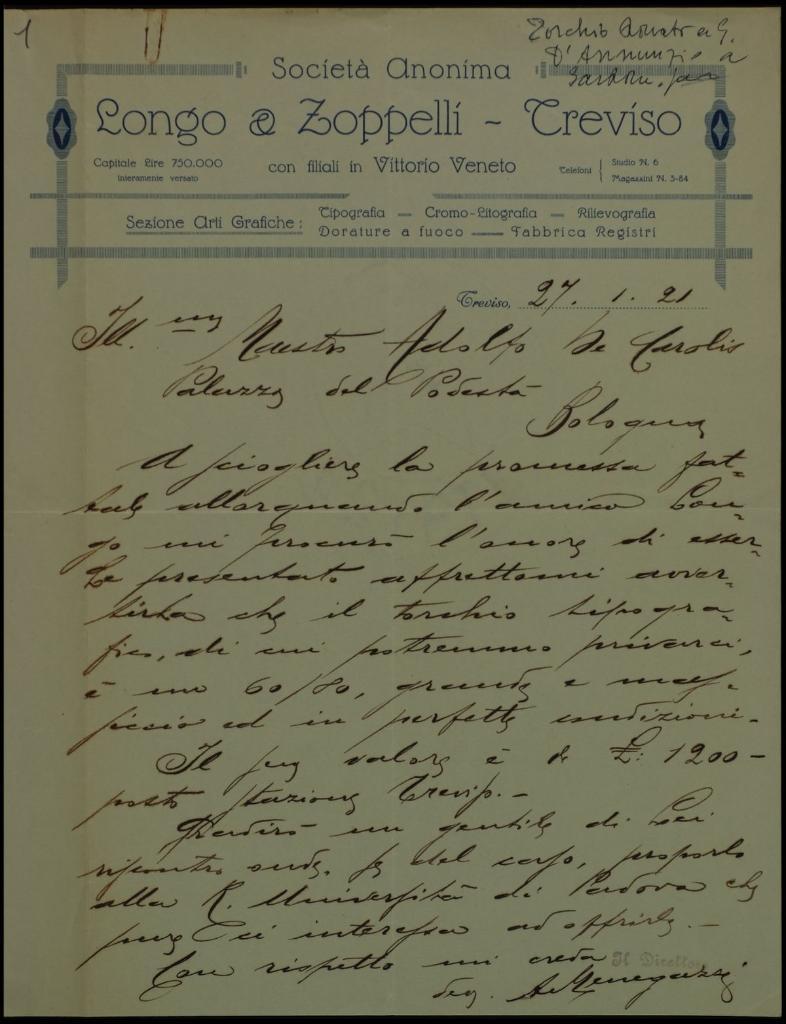 1
Torchio donato a G.
D'Annunzio a
Società Anonima
Longo & Zoppelli - Treviso
Capitale Lire 750.000
interamente versato
con filiali in Vittorio Veneto
Telefoni { Studio N. 6
Magazzini N. 3-84
Sezione Arti Grafiche:
Tipografia — Cromo-Litografia — Rilievografia
Dorature a fuoco — Fabbrica Registri
Treviso, 27. 1. 21
Ill.mo Maestro Adolfo De Carolis
Palazzo del Podestà
Bologna
A sciogliere la promessa fat-
tale allorquando l'amico Lon-
go mi procurò l'onore di esser-
Le presentato affrettomi avver-
tirLa che il torchio tipogra-
fico, di cui potremmo privarci,
è un 60/80, grande e mas-
siccio ed in perfette condizioni.
Il suo valore è di £: 1200 -
posto stazione Treviso. -
Gradirò un gentile di Lei
riscontro onde, se del caso, proporlo
alla R. Università di Padova che
pure ci interessa ad offrirle. -
Con rispetto mi creda
Il Direttore
dev. A. Menegazzi